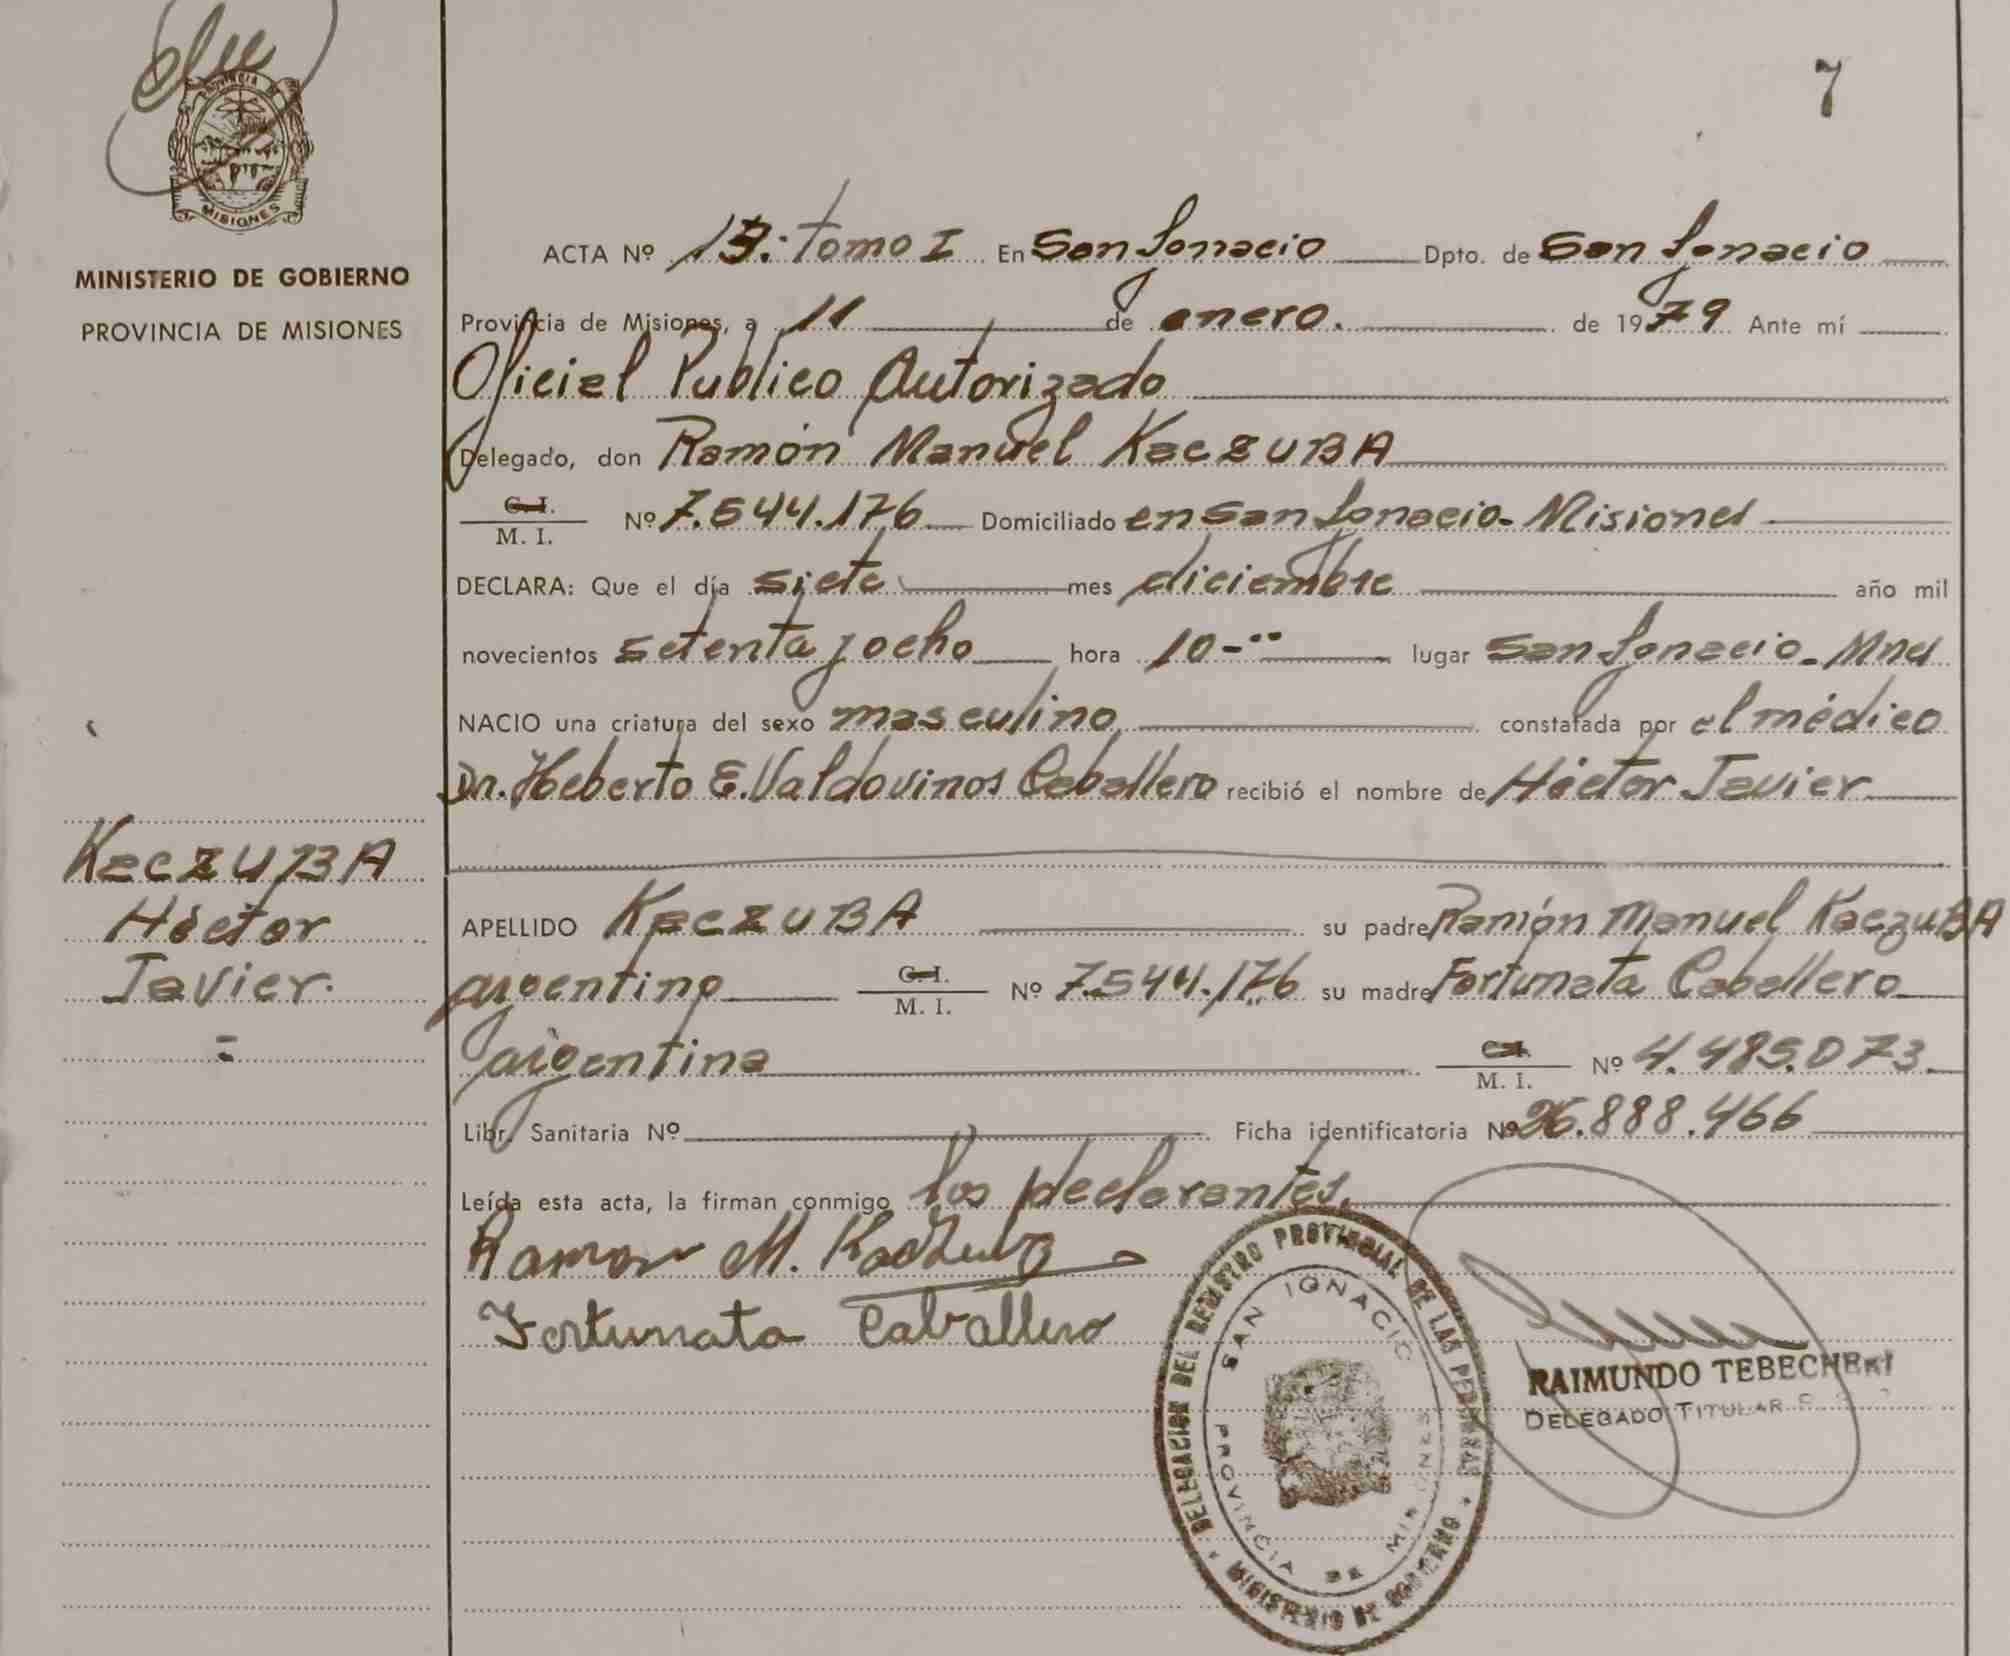 PROVINCIA DE
MISIONES
MINISTERIO DE GOBIERNO
PROVINCIA DE MISIONES
7
ACTA Nº 13. tomo I En San Ignacio Dpto. de San Ignacio
Provincia de Misiones, a 11 de enero. de 1979 Ante mí
Oficial Público Autorizado
Delegado, don Ramón Manuel KaczUBA
C. I.
M. I. Nº 7.544.176 Domiciliado en San Ignacio - Misiones
DECLARA: Que el día siete mes diciembre año mil
novecientos setenta y ocho hora 10-.. lugar San Ignacio - Mnes
NACIO una criatura del sexo masculino constatada por el médico
Dr. Heberto E. Valdovinos Caballero recibió el nombre de Héctor Javier
KaczUBA
Héctor
Javier.
=
APELLIDO KaczUBA su padre Ramón Manuel KaczuBA
argentino C. I.
M. I. Nº 7.544.176 su madre Fortunata Caballero
argentina C.I.
M. I. Nº 4.485.073.
Libr. Sanitaria Nº Ficha identificatoria Nº 26.888.466
Leída esta acta, la firman conmigo los declarantes.
Ramon M. Kaczuba
Fortunata Caballero
DELEGACION DEL REGISTRO PROVINCIAL DE LAS PERSONAS
SAN IGNACIO
PROVINCIA DE MISIONES
MINISTERIO DE GOBIERNO
RAIMUNDO TEBECHERI
DELEGADO TITULAR